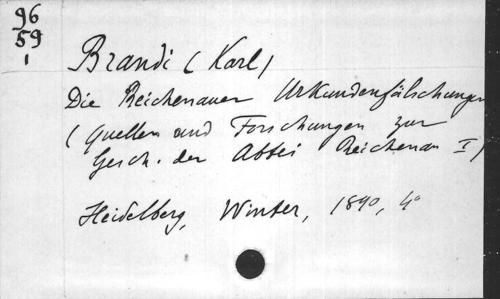 96
59
1
Brandi (Karl)
Die Reichenauer Urkundenfälschungen
(Quellen und Forschungen zur
Gesch. der Abtei Reichenau I)
Heidelberg, Winter, 1890, 4°